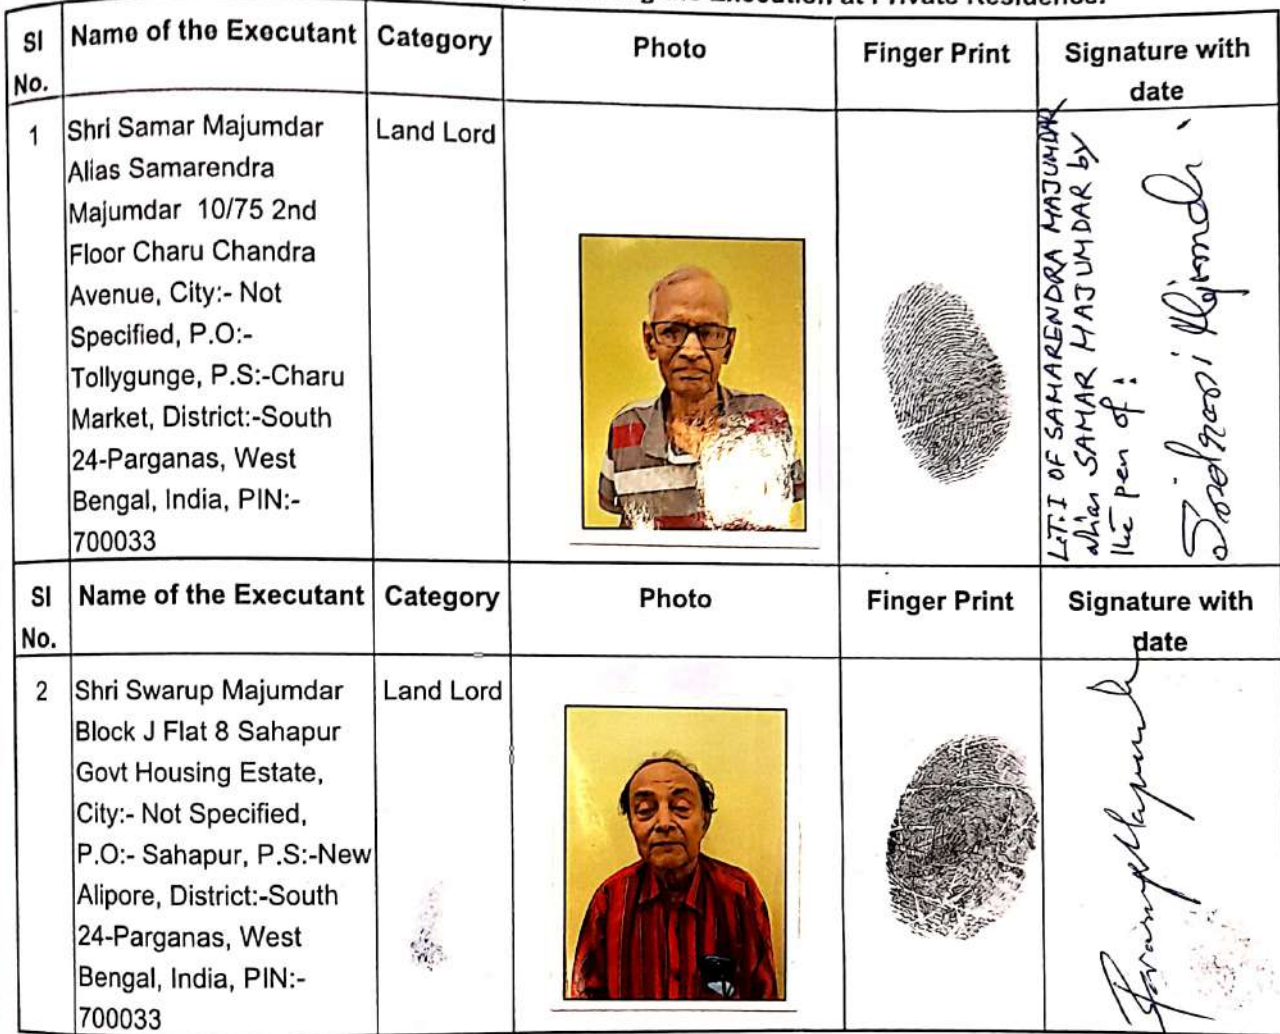 the Execution at Private Residence.
Sl No.
Name of the Executant
Category
Photo
Finger Print
Signature with date
1
Shri Samar Majumdar
Alias Samarendra
Majumdar 10/75 2nd
Floor Charu Chandra
Avenue, City:- Not
Specified, P.O:-
Tollygunge, P.S:-Charu
Market, District:-South
24-Parganas, West
Bengal, India, PIN:-
700033
Land Lord
L.T.I OF SAMARENDRA MAJUMDAR
alias SAMAR MAJUMDAR by
the pen of :
Sl No.
Name of the Executant
Category
Photo
Finger Print
Signature with date
2
Shri Swarup Majumdar
Block J Flat 8 Sahapur
Govt Housing Estate,
City:- Not Specified,
P.O:- Sahapur, P.S:-New
Alipore, District:-South
24-Parganas, West
Bengal, India, PIN:-
700033
Land Lord